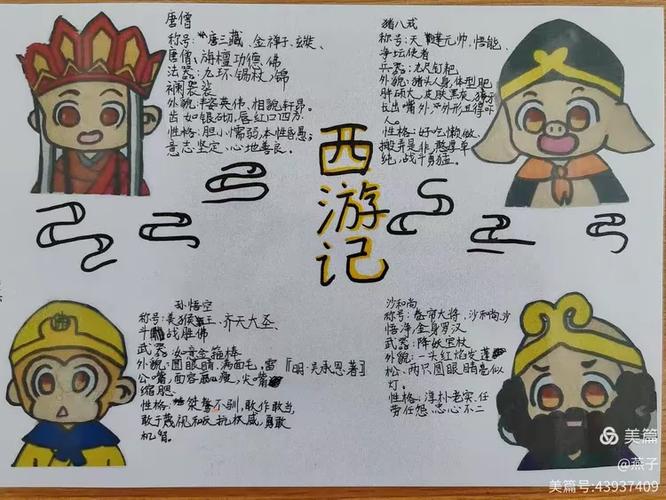 唐僧
称号:唐三藏、金禅子、玄奘、
唐僧、旃檀功德佛
法器:九环锡杖、锦
襕袈裟
外貌:丰容英伟,相貌轩昂。
齿如银砌,唇红口四方
性格:胆小懦弱,本性愚;
意志坚定、心地善良。
猪八戒
称号:天蓬元帅、悟能、
净坛使者
兵器:九尺钉耙
外貌:猪头人身,体型肥
胖硕大,皮肤黑灰,
长出嘴外,外形丑得吓
人。
性格:好吃懒做、
搬弄是非,憨厚单
纯,战斗勇猛。
西游记
孙悟空
称号:美猴王、齐天大圣、
斗战胜佛
武器:如意金箍棒
外貌:圆眼睛,满面毛,雷
公嘴,面容羸瘦,尖嘴
缩腮
性格:桀骜不驯,敢作敢当,
敢于蔑视和反抗权威,勇敢
机智。
『明·吴承恩著』
沙和尚
称号:卷帘大将,沙和尚,沙
悟净,金身罗汉
武器:降妖宝杖
外貌:一头红焰发蓬
松,两只圆眼睛亮似
灯。
性格:淳朴老实,任
劳任怨,忠心不二
美篇
@燕子
美篇号:43937409